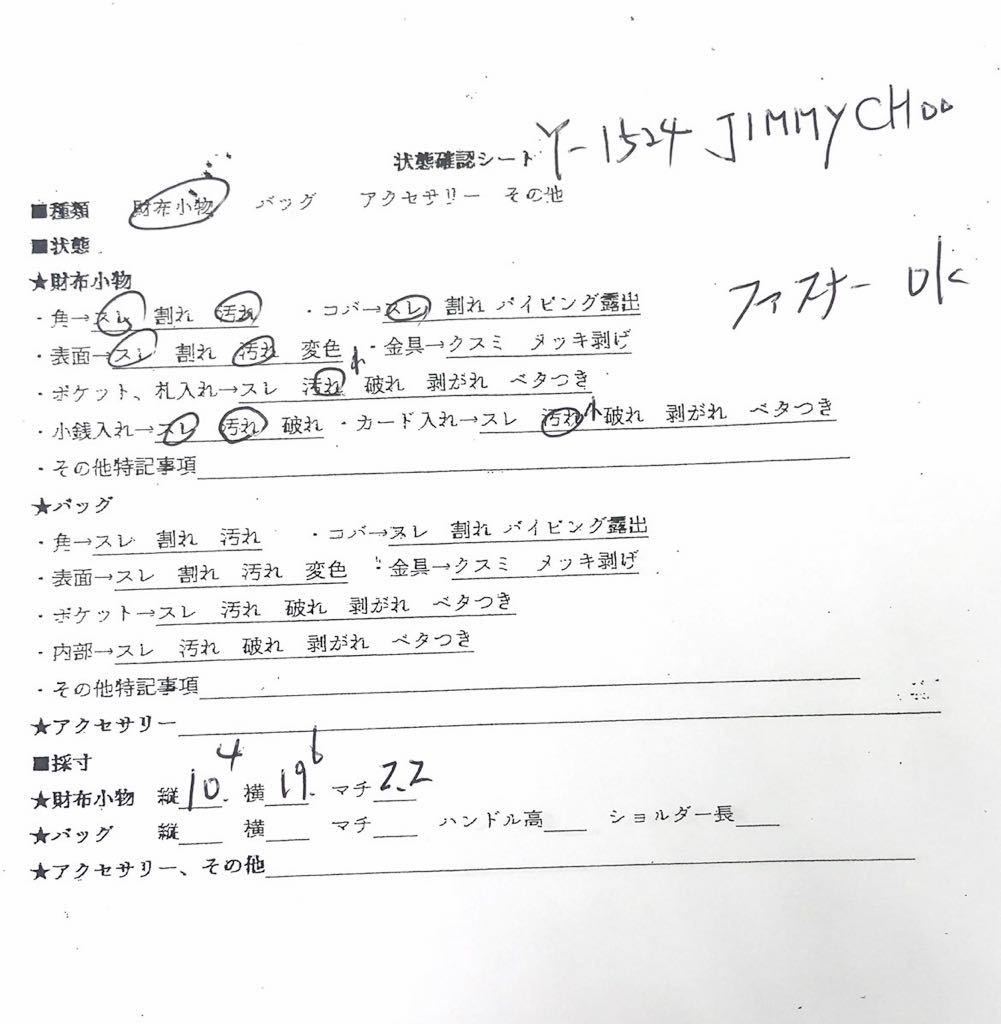 Y-1524 JIMMY CHOO
状態確認シート
■種類 財布小物 バッグ アクセサリー その他
■状態
★財布小物
ファスナー OK
・角→スレ 割れ 汚れ ・コバ→スレ 割れ パイピング露出
・表面→スレ 割れ 汚れ 変色 ・金具→クスミ メッキ剥げ
・ポケット、札入れ→スレ 汚れ 小 破れ 剥がれ ベタつき
・小銭入れ→スレ 汚れ 破れ ・カード入れ→スレ 汚れ 小 破れ 剥がれ ベタつき
・その他特記事項
★バッグ
・角→スレ 割れ 汚れ ・コバ→スレ 割れ パイピング露出
・表面→スレ 割れ 汚れ 変色 ・金具→クスミ メッキ剥げ
・ポケット→スレ 汚れ 破れ 剥がれ ベタつき
・内部→スレ 汚れ 破れ 剥がれ ベタつき
・その他特記事項
★アクセサリー
■採寸
★財布小物 縦10.4 横19.6 マチ2.2
★バッグ 縦 横 マチ ハンドル高 ショルダー長
★アクセサリー、その他